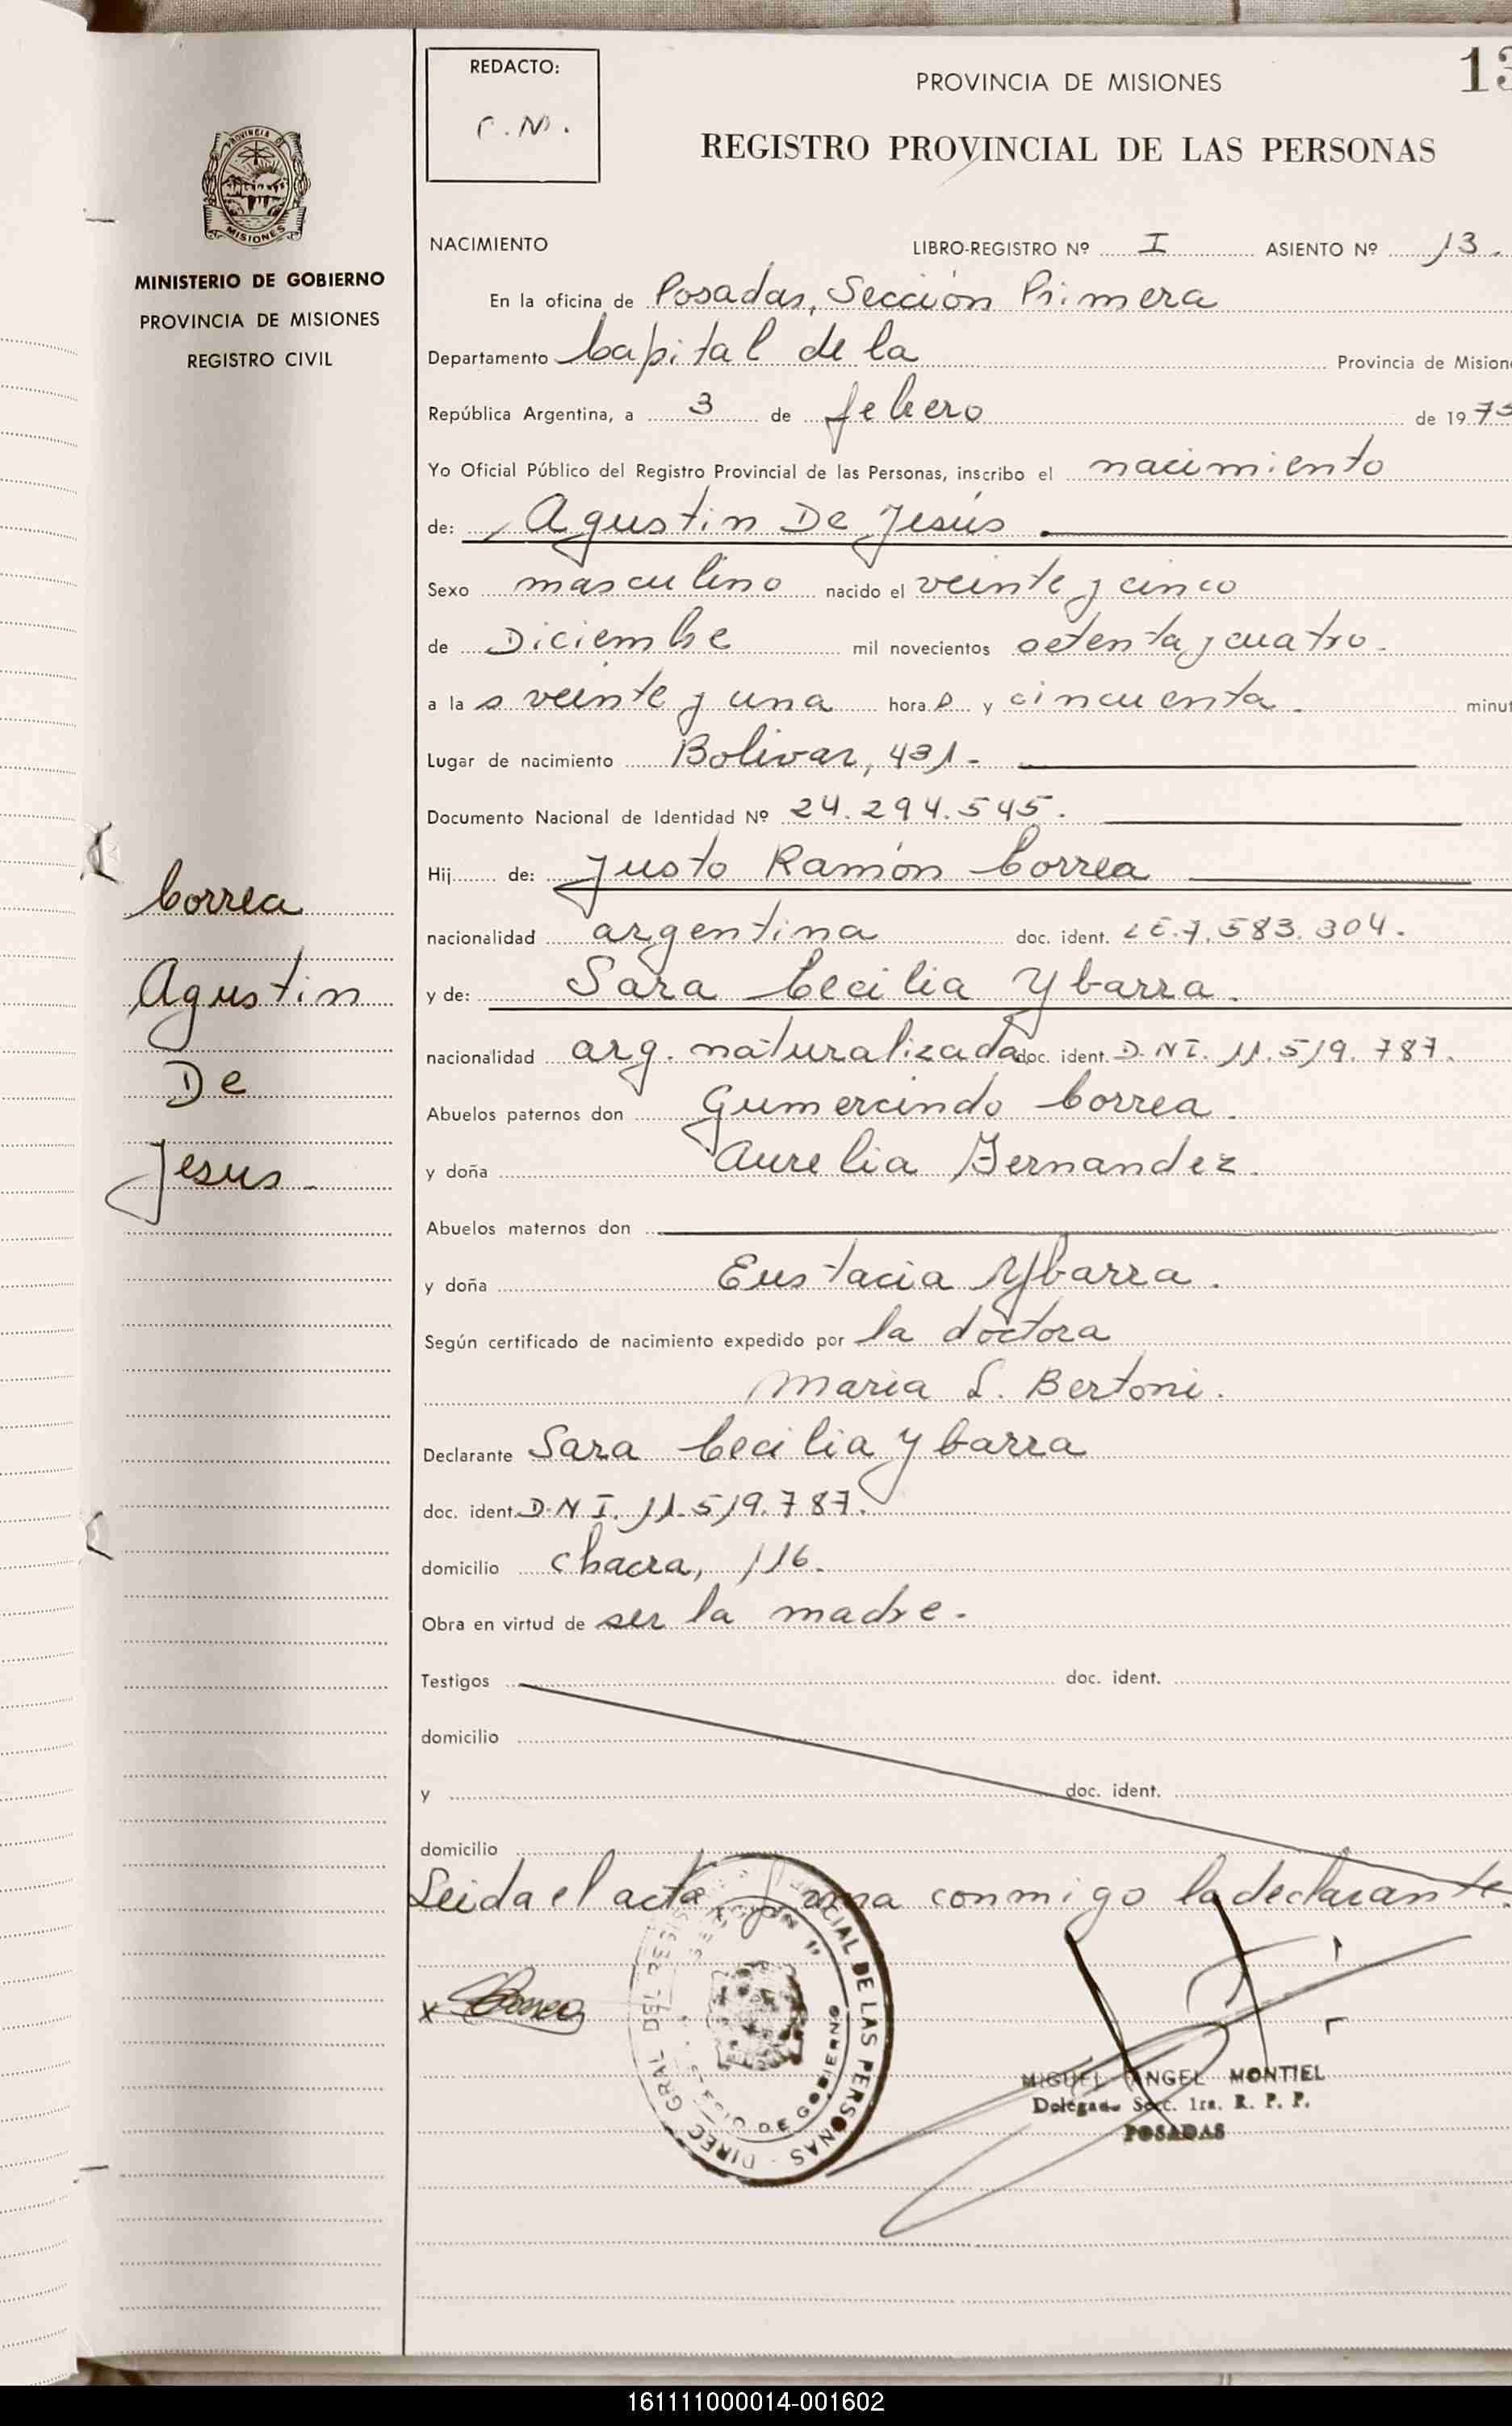 REDACTO:
C.M.
PROVINCIA DE MISIONES
13
REGISTRO PROVINCIAL DE LAS PERSONAS
PROVINCIA DE
MISIONES
MINISTERIO DE GOBIERNO
PROVINCIA DE MISIONES
REGISTRO CIVIL
NACIMIENTO LIBRO-REGISTRO Nº I ASIENTO Nº 13.
En la oficina de Posadas, Sección Primera
Departamento Capital de la Provincia de Mision
República Argentina, a 3 de febrero de 1975
Yo Oficial Público del Registro Provincial de las Personas, inscribo el nacimiento
de: Agustin De Jesús
Sexo masculino nacido el veinte y cinco
de Diciembre mil novecientos setenta y cuatro.
a las veinte y una horas y cincuenta. minut
Lugar de nacimiento Bolivar, 431.-
Documento Nacional de Identidad Nº 24.294.545.
Hij de: Justo Ramón Correa
nacionalidad argentina doc. ident. LE.7.583.304.
y de: Sara Cecilia Ybarra.
nacionalidad arg. naturalizada doc. ident. D.N.I. 11.519.787.
Abuelos paternos don Gumercindo Correa.
y doña Aurelia Fernandez.
Abuelos maternos don
y doña Eustacia Ybarra.
Según certificado de nacimiento expedido por la doctora
Maria S. Bertoni.
Declarante Sara Cecilia Ybarra
doc. ident. D.N.I. 11.519.787.
domicilio chacra, 116.
Obra en virtud de ser la madre.
Testigos doc. ident.
domicilio
y doc. ident.
domicilio
Leida el acta firma conmigo la declarante.
Correa
Agustin
De
Jesus.-
x
DIREC GRAL DEL REGIS CIAL DE LAS PERSONAS
DE GOBIERNO
MIGUEL ANGEL MONTIEL
Delegado Secc. 1ra. R. P. P.
POSADAS
161111000014-001602